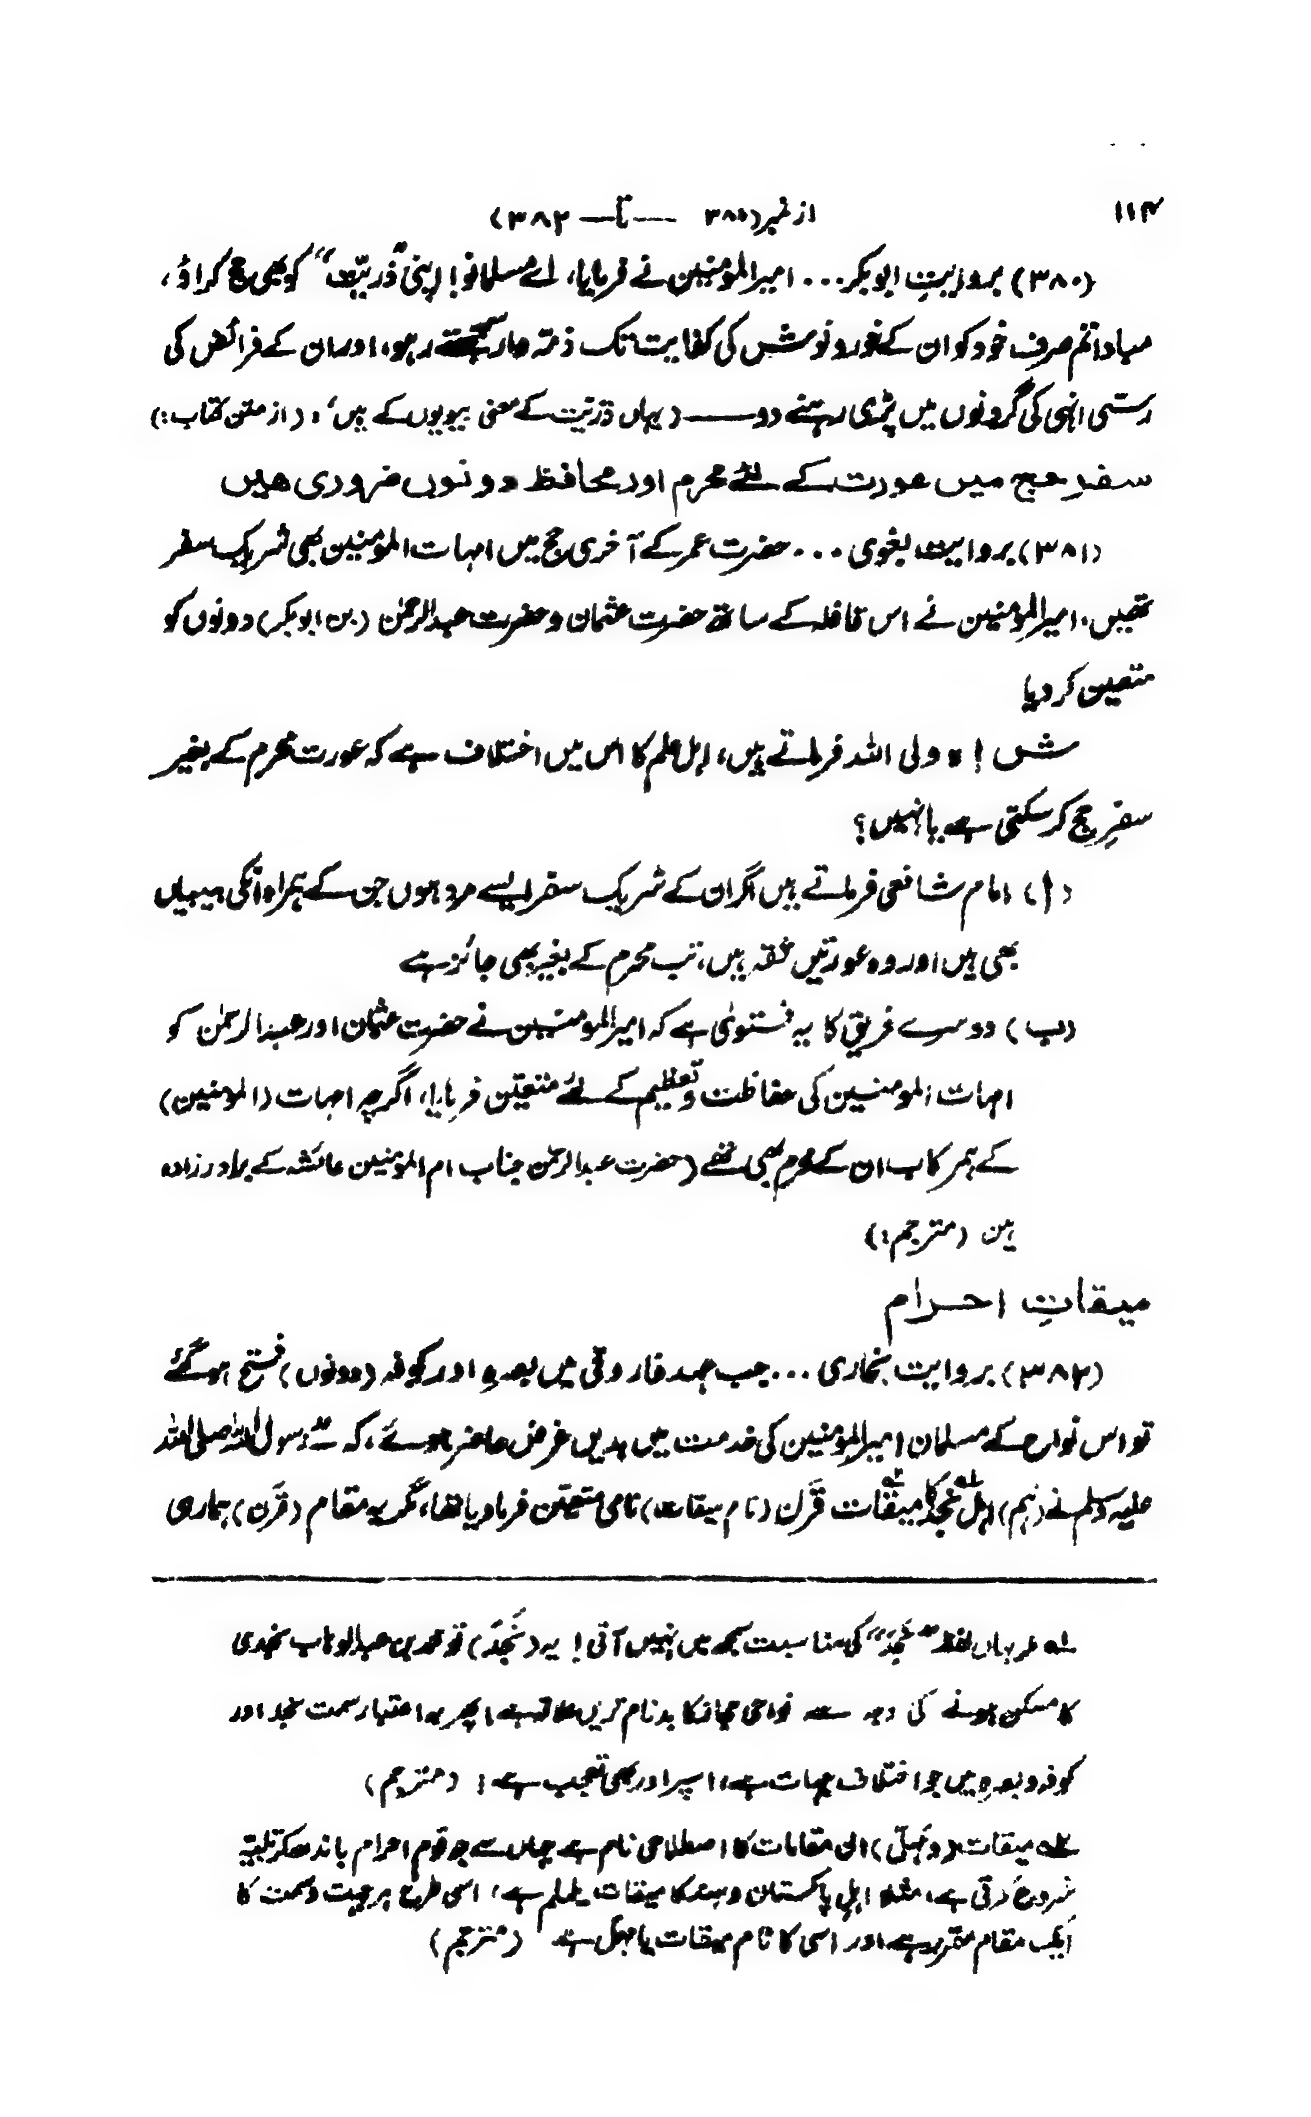 ۱۱۴
از نمبر (۳۸۰ ـــ تا ـــ ۳۸۲)
(۳۸۰) بروایتِ ابوبکر... امیرالمؤمنین نے فرمایا، اے مسلمانو! اپنی "ذریّت" کو بھی حج کراؤ،
مبادا تم صرف خود کو ان کے خورونوش کی کفایت تک ذمہ دار سمجھتے رہو، اور ان کے فرائض کی
رسّی انہی کی گردنوں میں پڑی رہنے دو ـــــ (یہاں ذریّت کے معنی بیویوں کے ہیں، (از متن کتاب:)
سفرِ حج میں عورت کے لئے محرم اور محافظ دونوں ضروری ہیں
(۳۸۱) بروایت بغوی... حضرت عمر کے آخری حج میں امہات المؤمنین بھی شریک سفر
تھیں، امیرالمؤمنین نے اس قافلہ کے ساتھ حضرت عثمان و حضرت عبدالرحمٰن (بن ابوبکر) دونوں کو
متعین کر دیا
ش ! ولی اللہ فرماتے ہیں، اہل علم کا اس میں اختلاف ہے کہ عورت محرم کے بغیر
سفرِ حج کر سکتی ہے یا نہیں؟
(ا) امام شافعی فرماتے ہیں اگر ان کے شریک سفر ایسے مرد ہوں جن کے ہمراہ انکی بیبیاں
بھی ہیں اور وہ عورتیں ثقہ ہیں، تب محرم کے بغیر بھی جائز ہے
(ب) دوسرے فریق کا یہ فتویٰ ہے کہ امیرالمومنین نے حضرت عثمان اور عبدالرحمٰن کو
امہات المومنین کی حفاظت و تعظیم کے لئے متعیّن فرمایا، اگرچہ امہات (المومنین)
کے ہمرکاب ان کے محرم بھی تھے (حضرت عبدالرحمٰن جناب ام المومنین عائشہ کے برادر زادہ
ہیں (مترجم:)
میقاتِ احرام
(۳۸۲) بروایت بخاری... جب عہد فاروقی میں بصرہ اور کوفہ (دونوں) فتح ہو گئے
تو اس نواح کے مسلمان امیرالمؤمنین کی خدمت میں بدیں غرض حاضر ہوئے، کہ "رسول اللہ صلی اللہ
علیہ وسلم نے (نہم) اہل نجد کا میقات قَرن (نام میقات) نامی متعیّن فرما دیا تھا، مگر یہ مقام (قرن) ہماری
لہ یہاں لفظ "نجد" کی مناسبت سمجھ میں نہیں آتی! یہ (نجد) تو محمد بن عبدالوہاب نجدی
کا مسکن ہونے کی وجہ سے نواحی حجاز کا بدنام تریں علاقہ ہے، پھر بہ اعتبار سمت نجد اور
کوفہ و بصرہ میں جو اختلاف جہات ہے، اسپر اور بھی تعجب ہے؛ (مترجم)
لہ میقات (و مہل) ان مقامات کا اصطلاحی نام ہے جہاں سے جو قوم احرام باندھ کر تلبیہ
شروع کرتی ہے، مثلا اہل پاکستان و ہند کا میقات یلملم ہے، اسی طرح ہر جہت و سمت کا
ایک مقام مقرر ہے اور اسی کا نام میقات یا مہل ہے (مترجم)